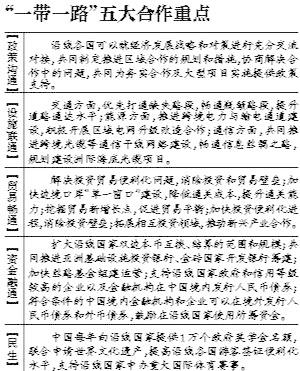 “一带一路”五大合作重点
【政策沟通】
沿线各国可以就经济发展战略和对策进行充分交流
对接,共同制定推进区域合作的规划和措施,协商解决合
作中的问题,共同为务实合作及大型项目实施提供政策
支持。
【设施联通】
交通方面,优先打通缺失路段,畅通瓶颈路段,提升
道路通达水平;能源方面,推进跨境电力与输电通道建
设,积极开展区域电网升级改造合作;通信方面,共同推
进跨境光缆等通信干线网络建设,畅通信息丝绸之路,
规划建设洲际海底光缆项目。
【贸易畅通】
解决投资贸易便利化问题,消除投资和贸易壁垒;加
快边境口岸“单一窗口”建设,降低通关成本,提升通关能
力;挖掘贸易新增长点,促进贸易平衡;加快投资便利化进
程,消除投资壁垒;拓展相互投资领域,推动新兴产业合作。
【资金融通】
扩大沿线国家双边本币互换、结算的范围和规模;共
同推进亚洲基础设施投资银行、金砖国家开发银行筹建;
加快丝路基金组建运营;支持沿线国家政府和信用等级
较高的企业以及金融机构在中国境内发行人民币债券;
符合条件的中国境内金融机构和企业可以在境外发行人
民币债券和外币债券,鼓励在沿线国家使用所筹资金。
【民生】
中国每年向沿线国家提供1万个政府奖学金名额,
联合申请世界文化遗产,提高沿线各国游客签证便利化
水平,支持沿线国家申办重大国际体育赛事。